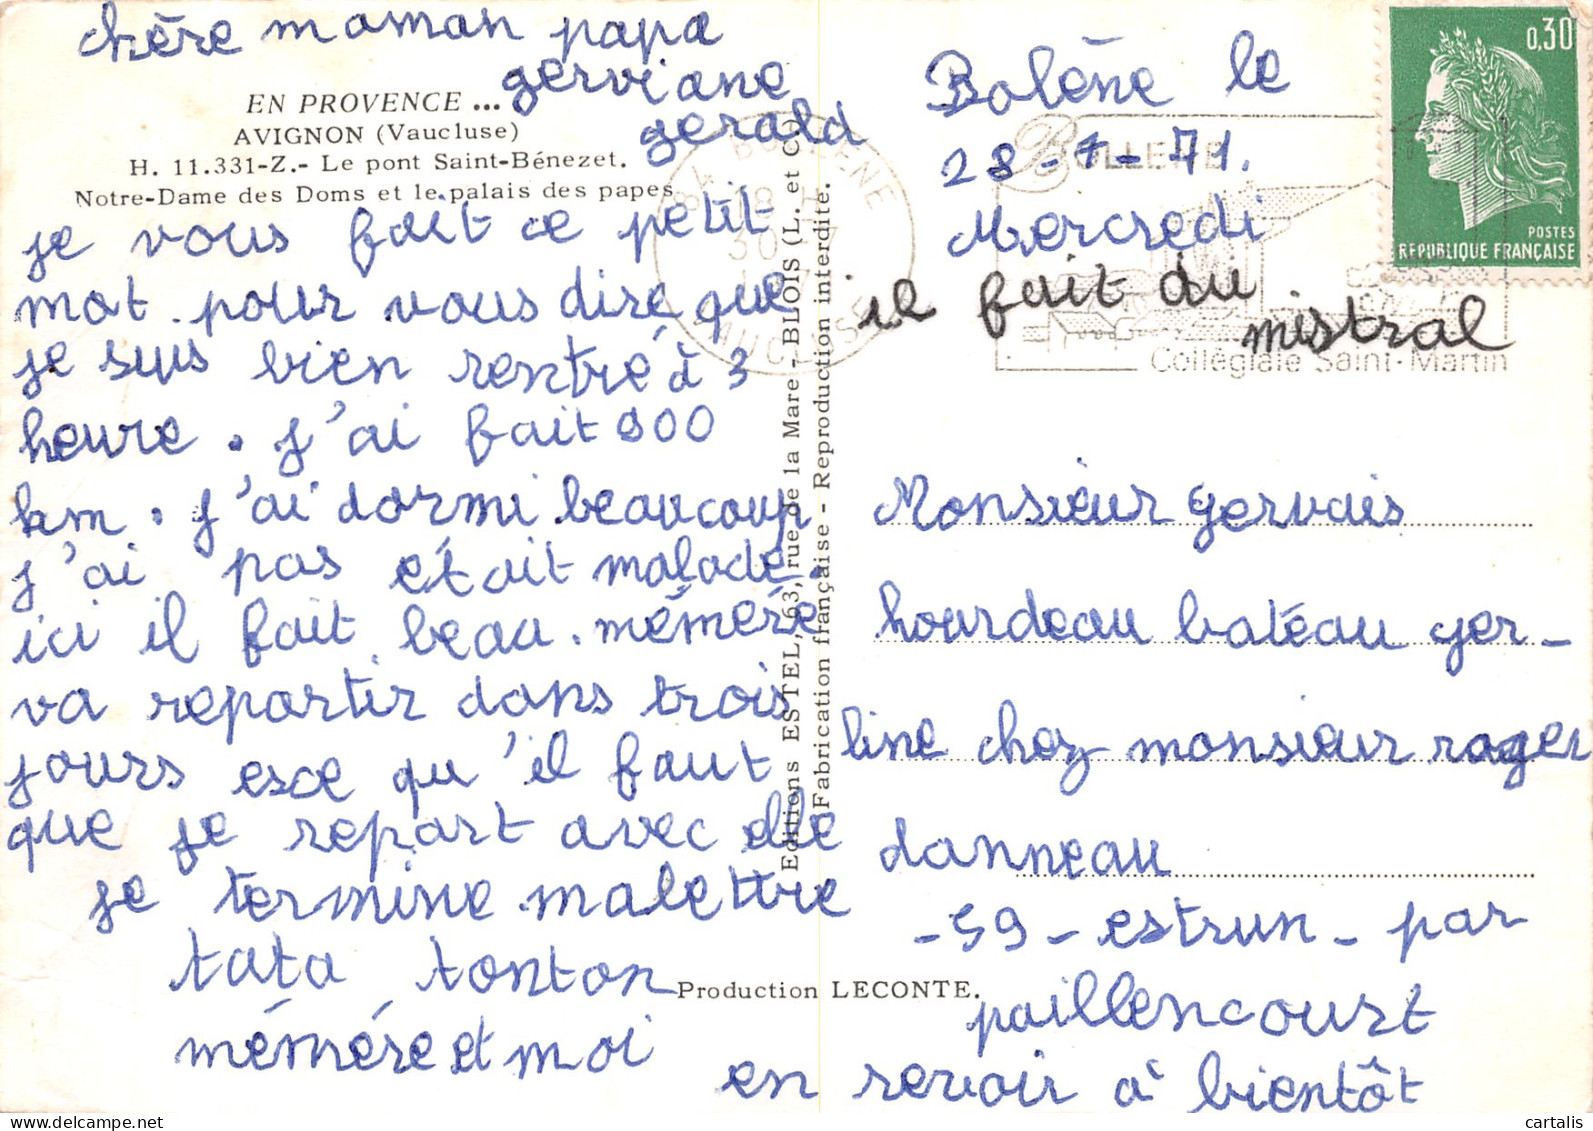 chère maman papa
gerviane
gerald
EN PROVENCE ...
AVIGNON (Vaucluse)
H. 11.331-Z.- Le pont Saint-Bénezet.
Notre-Dame des Doms et le palais des papes
je vous fait ce petit
mot. pour vous dire que
je suys bien rentré à 3
heure. j'ai fait 900
km. j'ai dormi beaucoup
j'ai pas etait malade.
ici il fait beau. mémère
va repartir dans trois
jours esce qu'il faut
que je repart avec elle
je termine malettre
tata tonton
mémére et moi
Editions ESTEL, 63, rue de la Mare - BLOIS (L. et C.)
Fabrication française - Reproduction interdite.
Production LECONTE.
Bolène le
28-7-71.
Mercredi
il fait du
mistral
0,30
POSTES
REPUBLIQUE FRANÇAISE
84 BOLLENE
18 H
30-7
VAUCLUSE
BOLLENE
Collégiale Saint-Martin
Monsieur gervais
hourdeau batéau ger-
line chez monsieur roger
danneau
-59- estrun - par
paillencourt
en revoir à bientôt
cartalis
www.delcampe.net